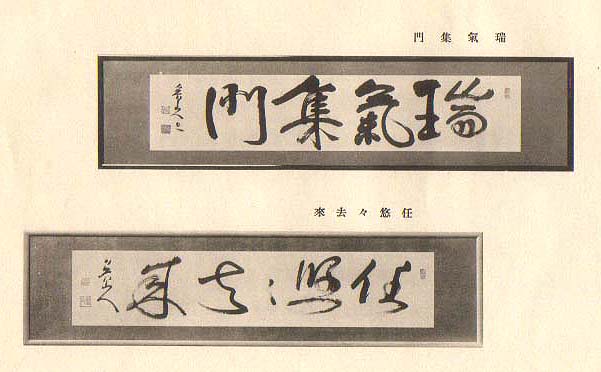 瑞氣集門
瑞氣集門
任悠々去來
任悠々去来